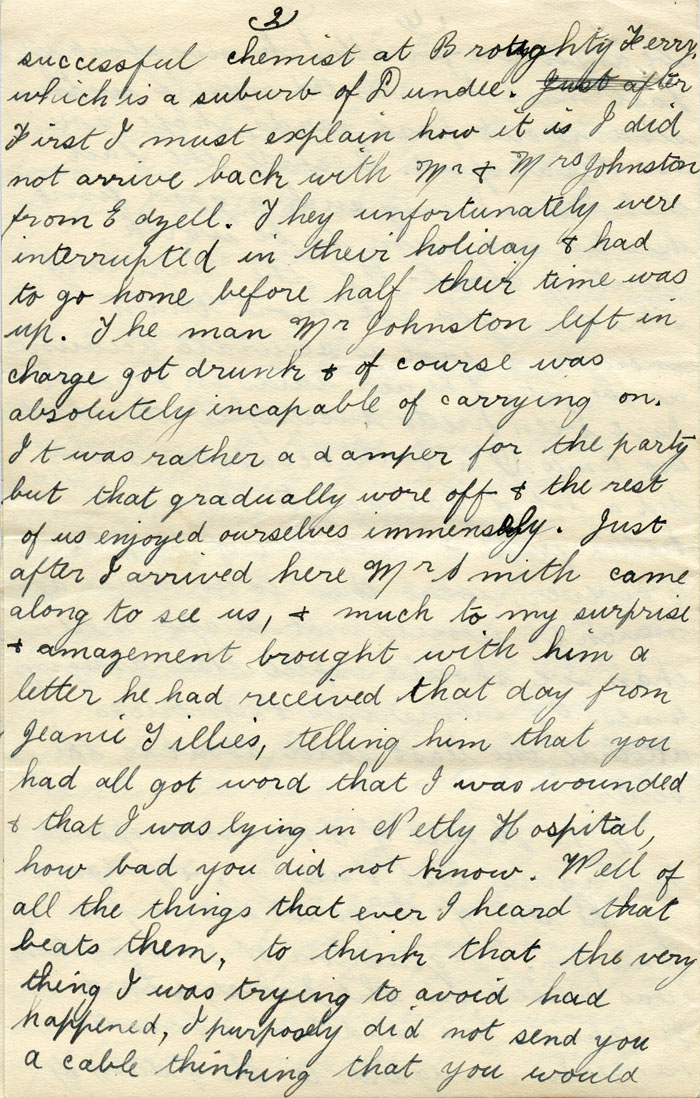 2
successful chemist at Broughty Ferry,
which is a suburb of Dundee. Just after
First I must explain how it is I did
not arrive back with Mr & Mrs Johnston
from Edzell. They unfortunately were
interrupted in their holiday & had
to go home before half their time was
up. The man Mr Johnston left in
charge got drunk & of course was
absolutely incapable of carrying on.
It was rather a damper for the party
but that gradually wore off & the rest
of us enjoyed ourselves immensely. Just
after I arrived here Mr Smith came
along to see us, & much to my surprise
& amazement brought with him a
letter he had received that day from
Jeanie Gillies, telling him that you
had all got word that I was wounded
& that I was lying in Netly Hospital,
how bad you did not know. Well of
all the things that ever I heard that
beats them, to think that the very
thing I was trying to avoid had
happened, I purposely did not send you
a cable thinking that you would